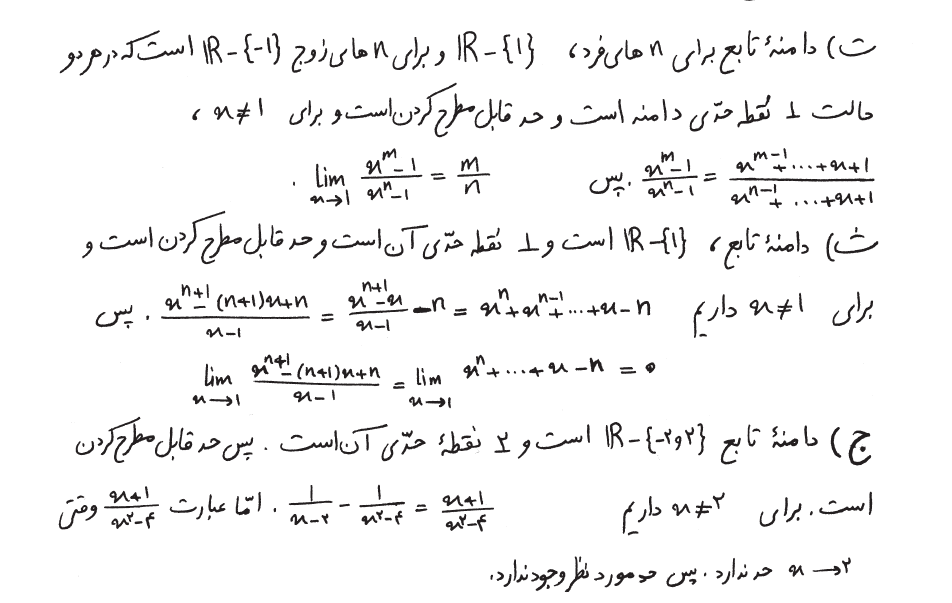 ت) دامنهٔ تابع برای n های فرد، ℝ-{1} و برای n های زوج ℝ-{-1} است که در هر دو
حالت 1 نقطه حدّی دامنه است و حد قابل مطرح کردن است و برای x≠1 ،
(x^m-1)/(x^n-1) = (x^{m-1}+...+x+1)/(x^{n-1}+...+x+1) . پس lim_{x→1} (x^m-1)/(x^n-1) = m/n .
ث) دامنهٔ تابع، ℝ-{1} است و 1 نقطه حدّی آن است و حد قابل مطرح کردن است و
برای x≠1 داریم (x^{n+1}-(n+1)x+n)/(x-1) = (x^{n+1}-x)/(x-1) - n = x^n+x^{n-1}+...+x-n . پس
lim_{x→1} (x^{n+1}-(n+1)x+n)/(x-1) = lim_{x→1} x^n+...+x-n = ۰
ج) دامنهٔ تابع ℝ-{-۲و۲} است و ۲ نقطهٔ حدّی آن است . پس حد قابل مطرح کردن
است. برای x≠۲ داریم 1/(x-۲) - 1/(x^۲-۴) = (x+1)/(x^۲-۴) . امّا عبارت (x+1)/(x^۲-۴) وقتی
x→۲ حد ندارد . پس حد مورد نظر وجود ندارد.